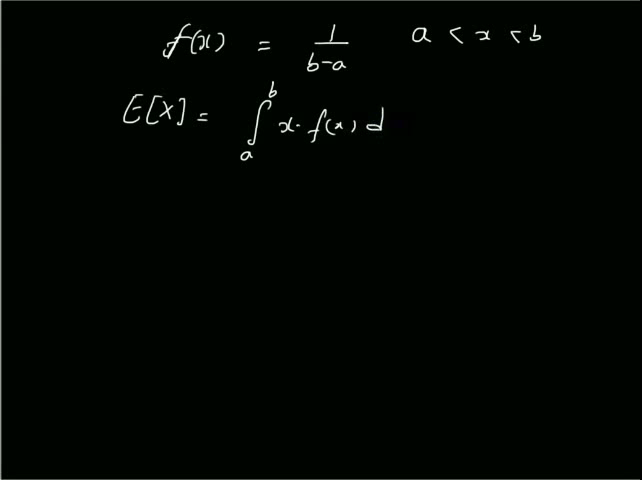 f(x) = \frac{1}{b-a} a < x < b
E[X] = \int_a^b x \cdot f(x) d